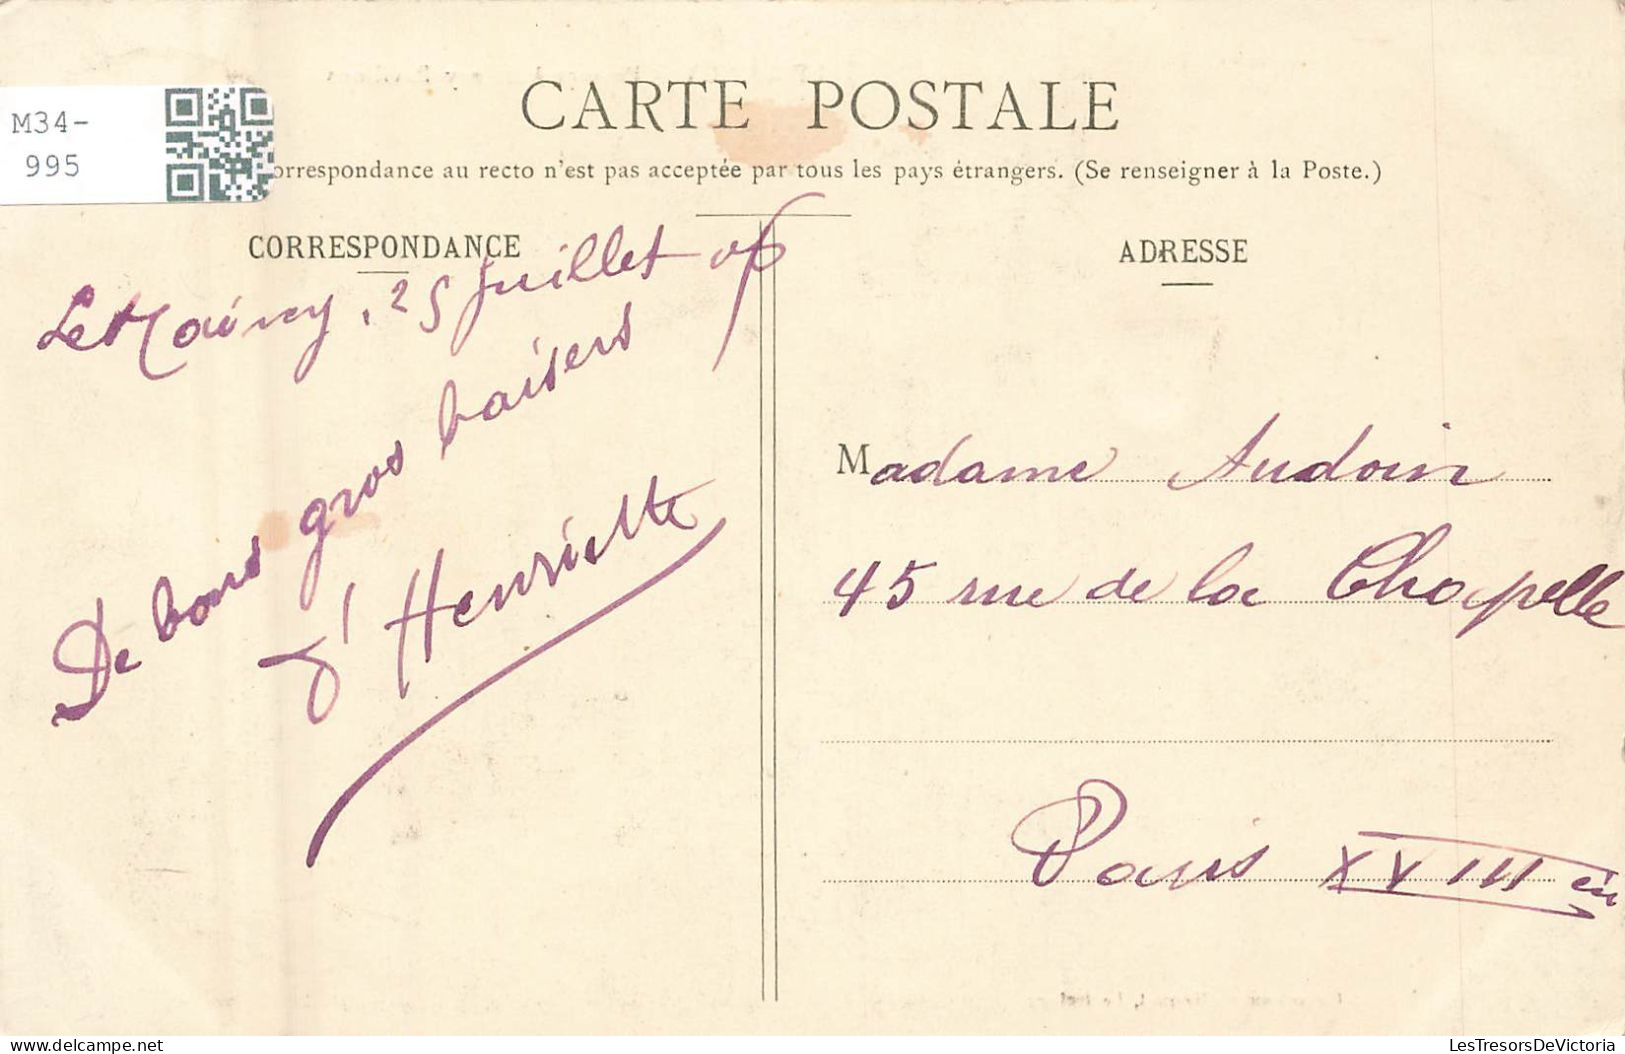 CARTE POSTALE
M34-
995
orrespondance au recto n'est pas acceptée par tous les pays étrangers. (Se renseigner à la Poste.)
CORRESPONDANCE
25 Juillet 06
De bons gros baisers
d'Henriette
ADRESSE
Madame Audoin
45 rue de la Chapelle
Paris XVIII
delcampe.net
LesTresorsDeVictoria